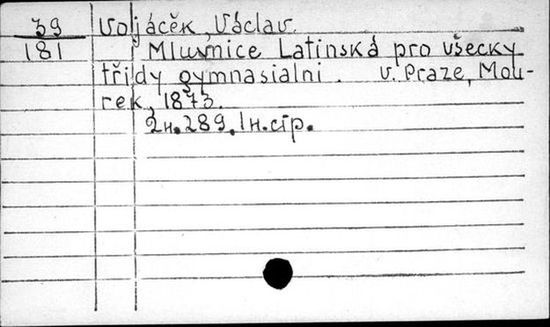 39 Voljáček, Václav.
181 Mluvnice Latinská pro všecky
třídy gymnasialni. v. Praze, Mou-
rek, 1873.
2н. 289, 1н. cíp.